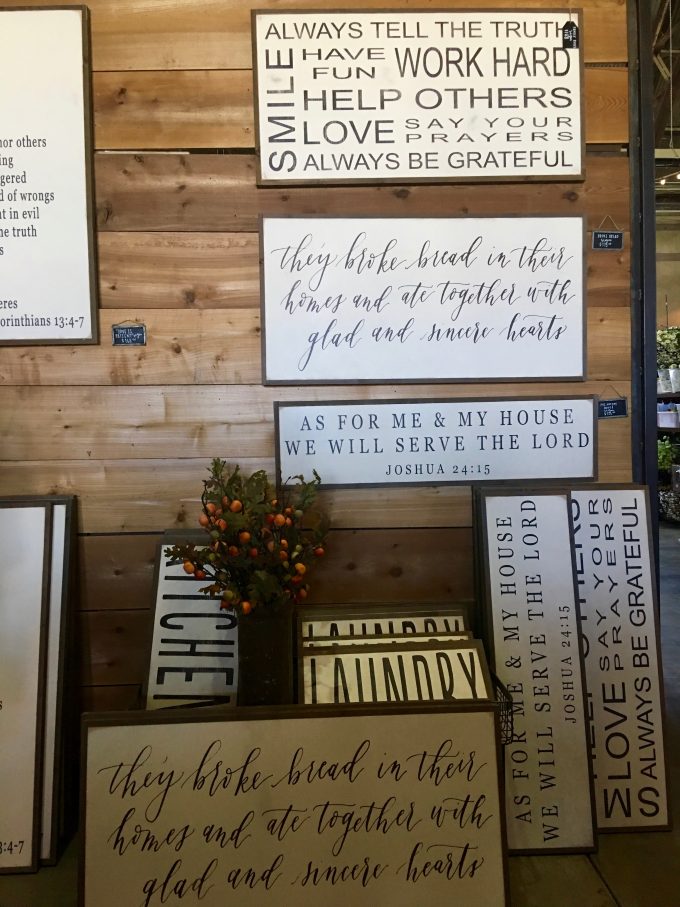 ALWAYS TELL THE TRUTH
SMILE
HAVE FUN
WORK HARD
HELP OTHERS
LOVE
SAY YOUR PRAYERS
ALWAYS BE GRATEFUL
others
d of wrongs
t in evil
truth
orinthians 13:4-7
they broke bread in their
homes and ate together with
glad and sincere hearts
AS FOR ME & MY HOUSE
WE WILL SERVE THE LORD
JOSHUA 24:15
KITCHEN
LAUNDRY
LAUNDRY
AS FOR ME & MY HOUSE
WE WILL SERVE THE LORD
JOSHUA 24:15
LOVE
SAY YOUR
PRAYERS
ALWAYS BE GRATEFUL
3:4-7
they broke bread in their
homes and ate together with
glad and sincere hearts